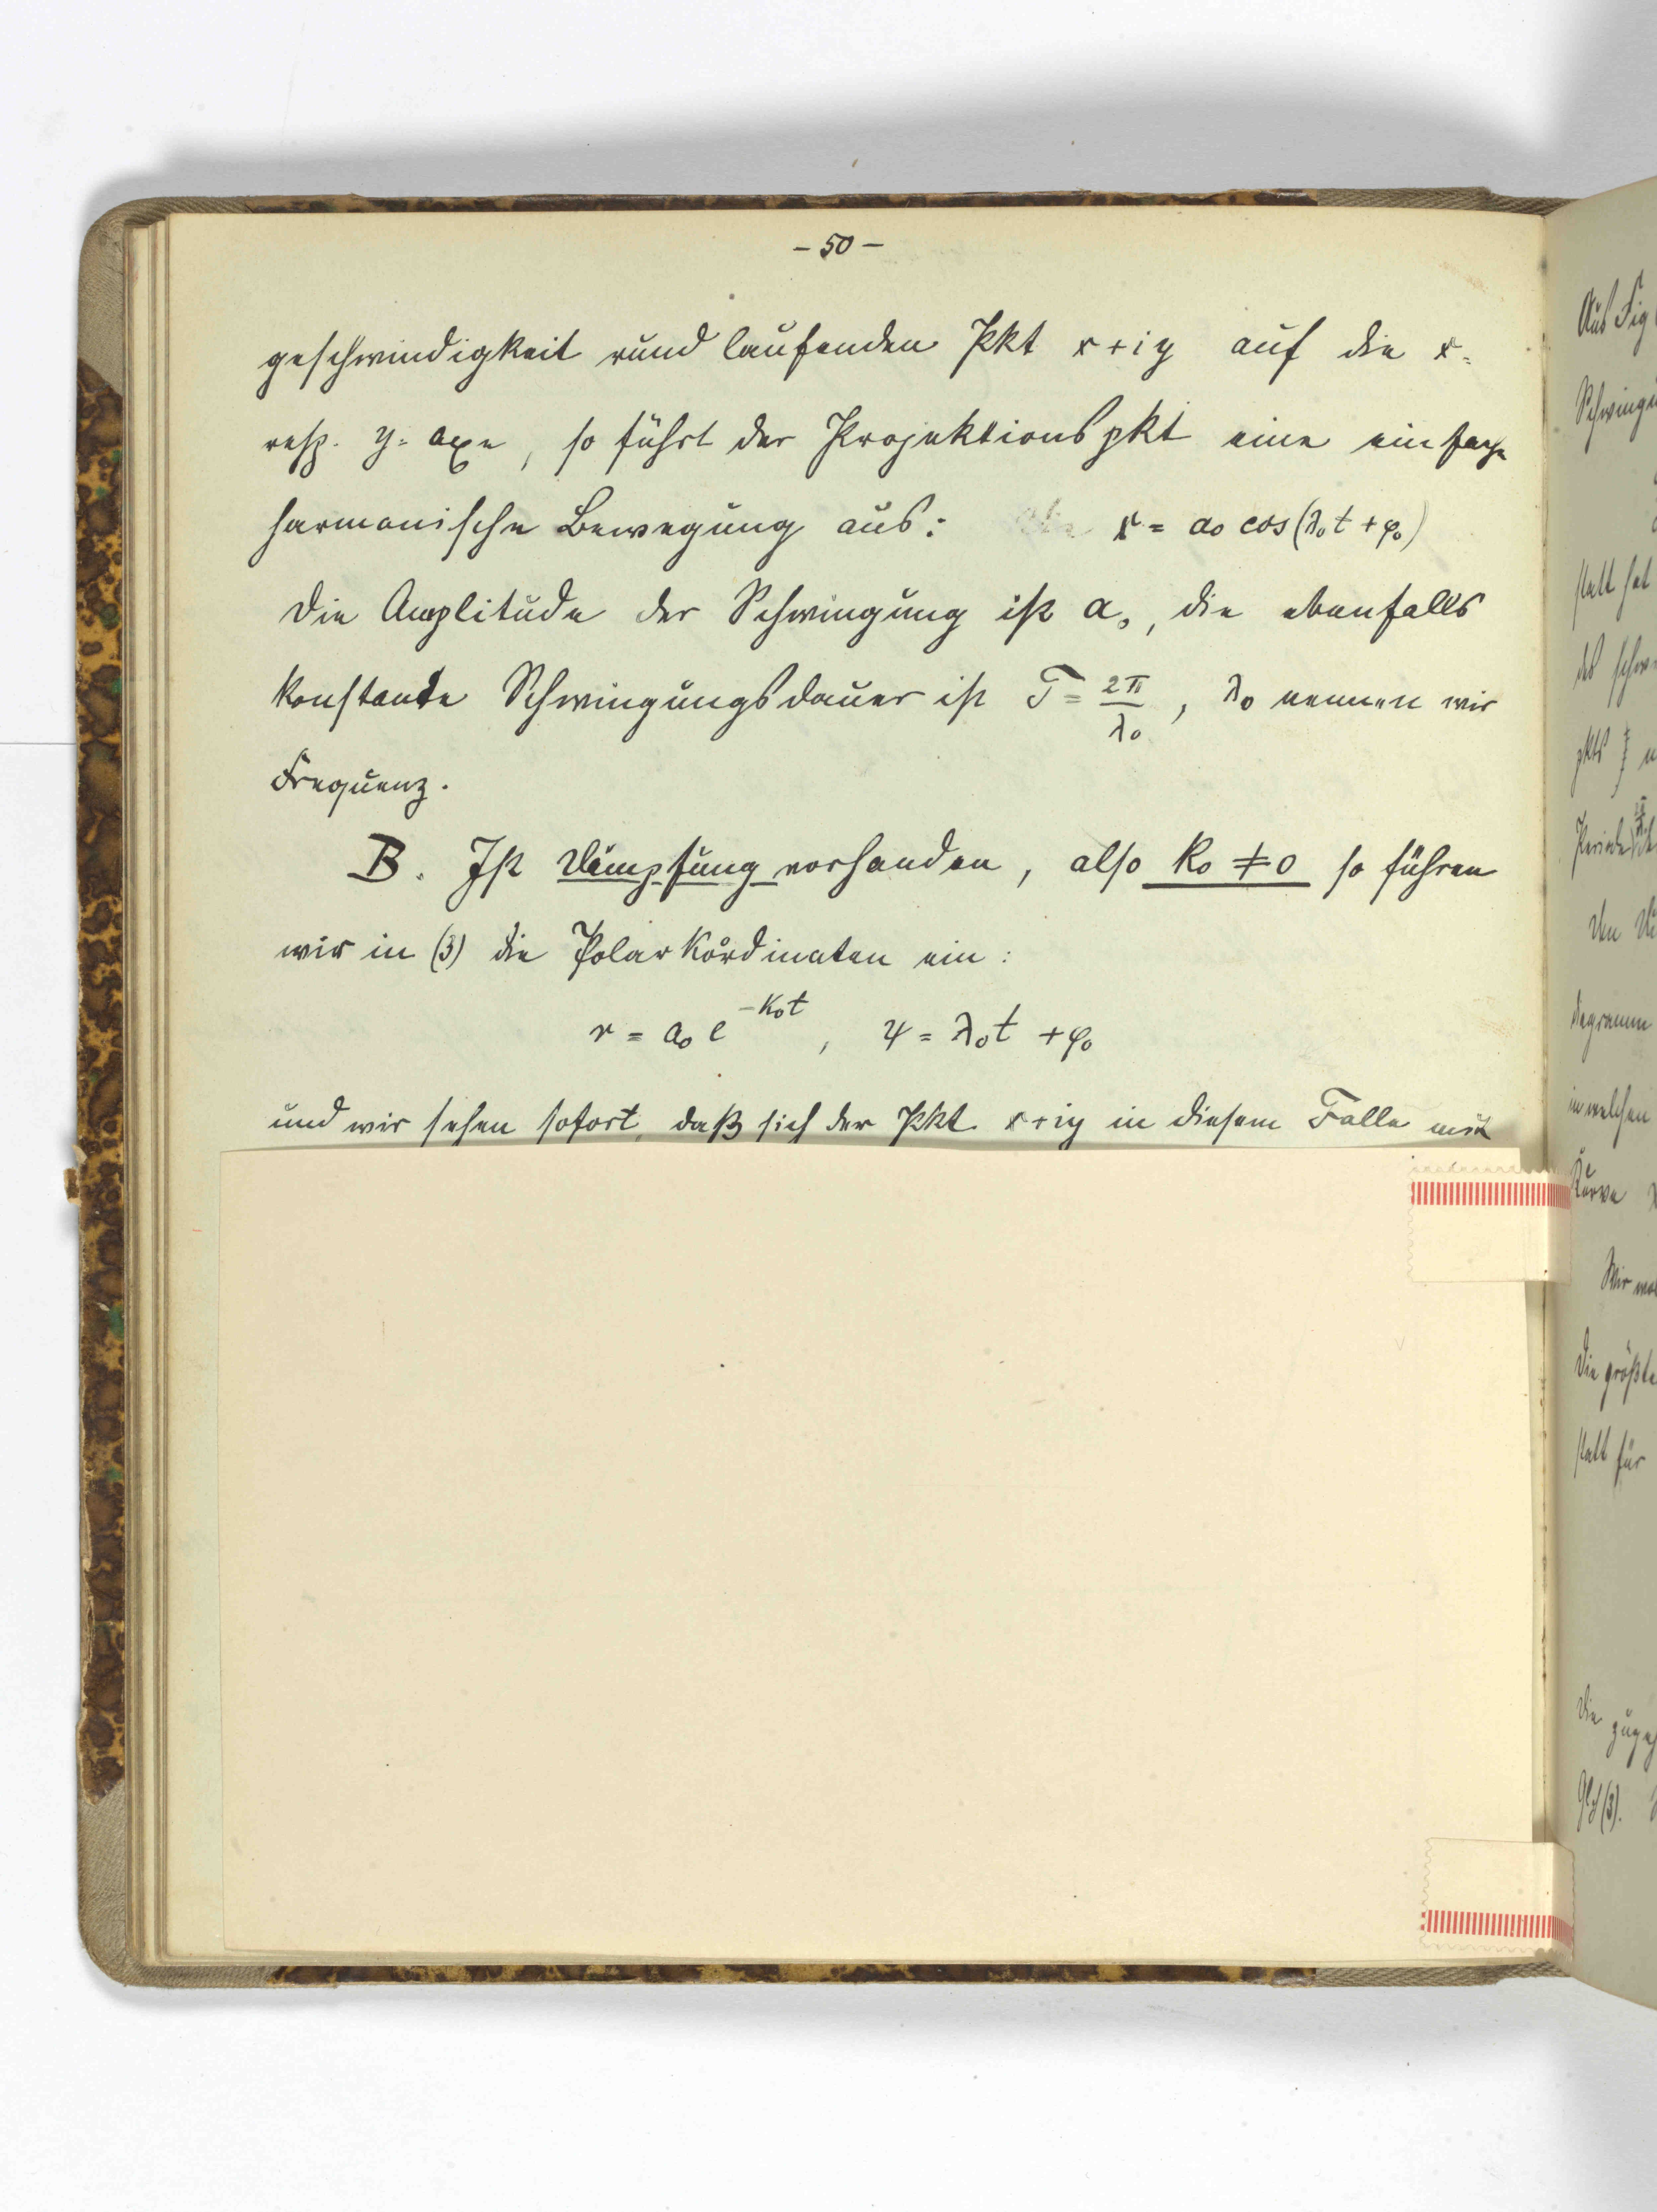 – 50 –
geschwindigkeit rund laufenden Pkt x+iy auf die x-
resp. y-axe, so führt der Projektionspkt eine einfache
harmonische Bewegung aus: x = a₀ cos(λ₀t + φ₀)
Die Amplitude der Schwingung ist a₀, die ebenfalls
konstante Schwingungsdauer ist T = 2π/λ₀, λ₀ nennen wir
Frequenz.
B. Ist Dämpfung vorhanden, also k₀ ≠ 0 so führen
wir in (3) die Polarkoordinaten ein:
r = a₀ e^{-k₀t}, ψ = λ₀t + φ₀
und wir sehen sofort, daß sich der Pkt x+iy in diesem Falle mit
Aus Fig
Schwingu
statt hat
des schw
pkts
Periode
Den Dä
diagramm
in welchem
Kurve
Wir wol
Die größte
statt für
Die zugeh
Glch (3).